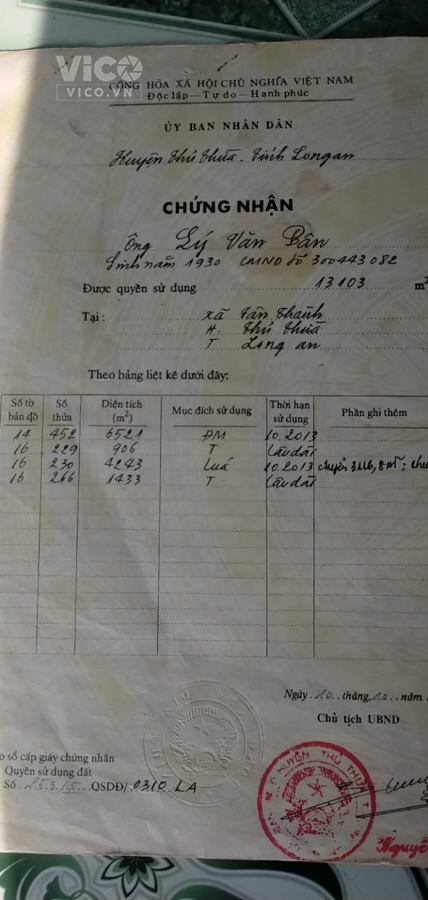 VICO
VICO.VN
CỘNG HÒA XÃ HỘI CHỦ NGHĨA VIỆT NAM
Độc lập — Tự do — Hạnh phúc
ỦY BAN NHÂN DÂN
Huyện Thủ Thừa - Tỉnh Long an
CHỨNG NHẬN
Ông Lý Văn Bân
Sinh năm 1930 CMND số 300443082
Được quyền sử dụng 13103 m²
Tại : xã Tân Thành
H. Thủ Thừa
T Long an
Theo bảng liệt kê dưới đây:
Số tờ bản đồ Số thửa Diện tích (m²) Mục đích sử dụng Thời hạn sử dụng Phần ghi thêm
14 452 6521 ĐM 10.2013
16 229 906 T Lâu dài
16 230 4243 Luá 10.2013 chuyển
16 266 1433 T Lâu dài
Ngày 10 tháng 12 năm
Chủ tịch UBND
o sổ cấp giấy chứng nhận
Quyền sử dụng đất
Số QSDĐ/ 0310 LA
HUYỆN THỦ THỪA
Nguyễ